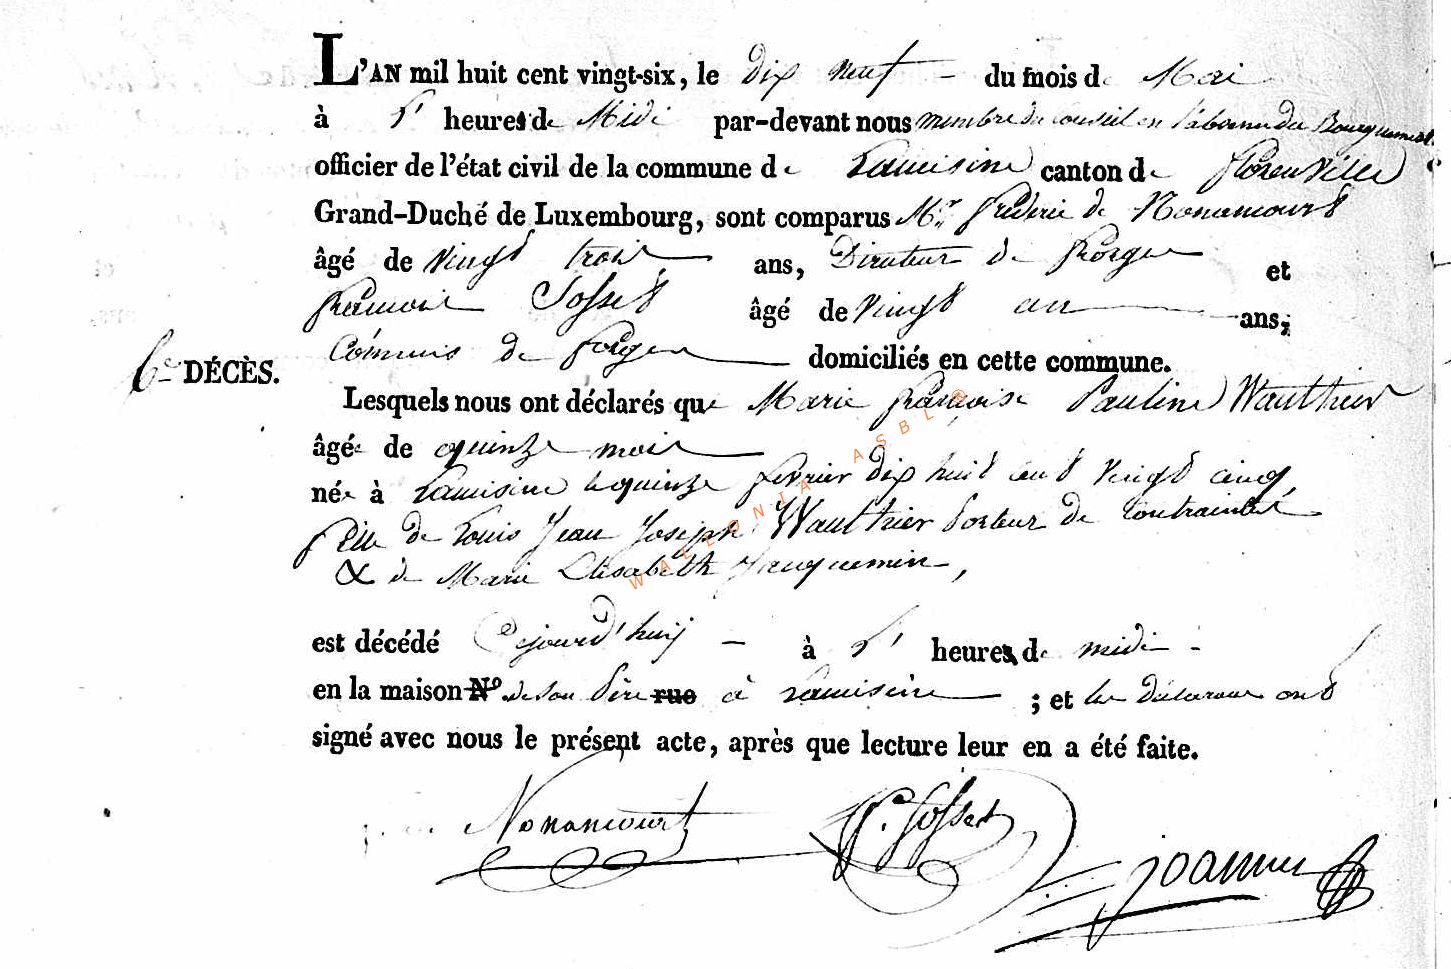 L'AN mil huit cent vingt-six, le dix neuf du mois de Mai
à heures de Midi par-devant nous membre du conseil en l'absence du Bourguemestre
officier de l'état civil de la commune de Lamisine canton de florenville
Grand-Duché de Luxembourg, sont comparus Mr fréderic de Nonancourt
âgé de vingt trois ans, Directeur de forges et
françois Josset âgé de vingt un ans,
Commis de forges domiciliés en cette commune.
6e DÉCÈS.
Lesquels nous ont déclarés que Marie françoise Pauline Wauthier
âgée de quinze mois
née à Lamisine le quinze février dix huit cent vingt cinq
fille de Louis Jean Joseph Wauthier Porteur de Contraintes
& de Marie Elisabeth Jacquemin,
WALLONIA ASBL ©
est décédé aujourd'huy à heures de midi
en la maison No. de son Père rue à Lamisine ; et les déclarans ont
signé avec nous le présent acte, après que lecture leur en a été faite.
Nonancourt f. Josset joannes